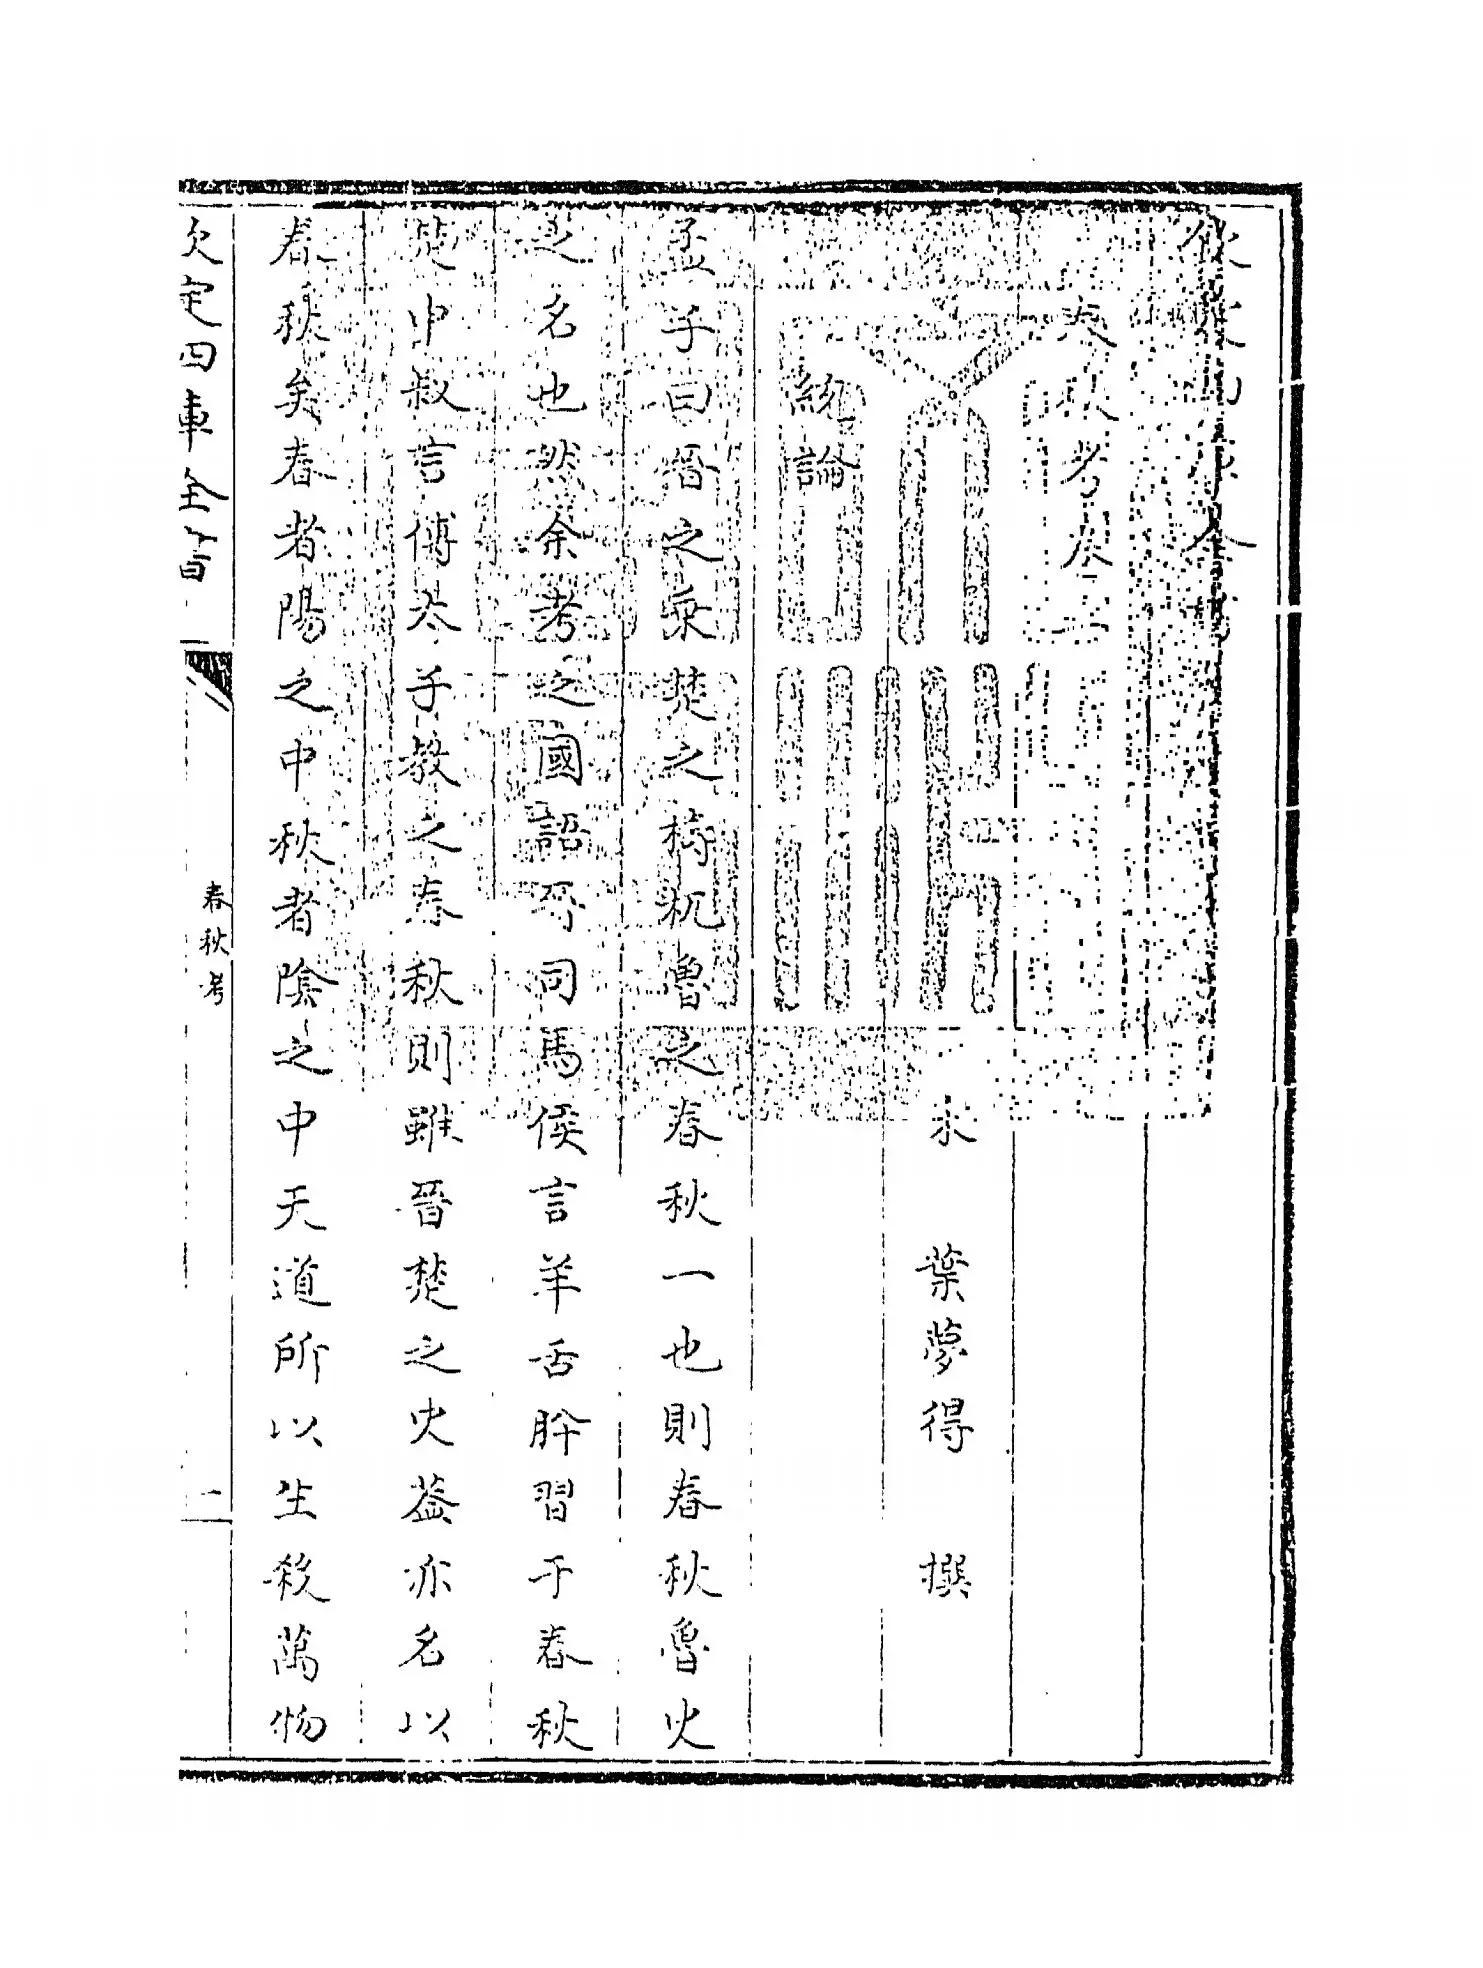 欽定四庫全書
春秋考卷一
宋 葉夢得 撰
統論
孟子曰晉之乘楚之檮杌魯之春秋一也則春秋魯史
之名也然余考之國語司馬侯言羊舌肸習于春秋
楚申叔言傅太子教之春秋則雖晉楚之史蓋亦名以
春秋矣春者陽之中秋者陰之中天道所以生殺萬物
欽定四庫全書
春秋考
一